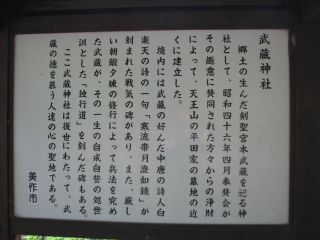 武蔵神社
郷土の生んだ剣聖宮本武蔵を記る神
社として、昭和四十六年四月奉賛会が
その趣意に賛同された方々からの浄財
によって、天王山の平田家の墓地の近
くに建立した。
境内には武蔵の好んだ中唐の詩人白
楽天の詩の一句「寒流帯月澄如鏡」が
刻まれた戦気の碑があり、また、厳し
い朝鍛夕錬の修行によって兵法を究め
た武蔵が、その一生の自戒自誓の処世
訓とした「独行道」を刻んだ碑もある。
ここ武蔵神社は後世にわたって、武
蔵の徳を慕う人達の心の聖地である。
美作市